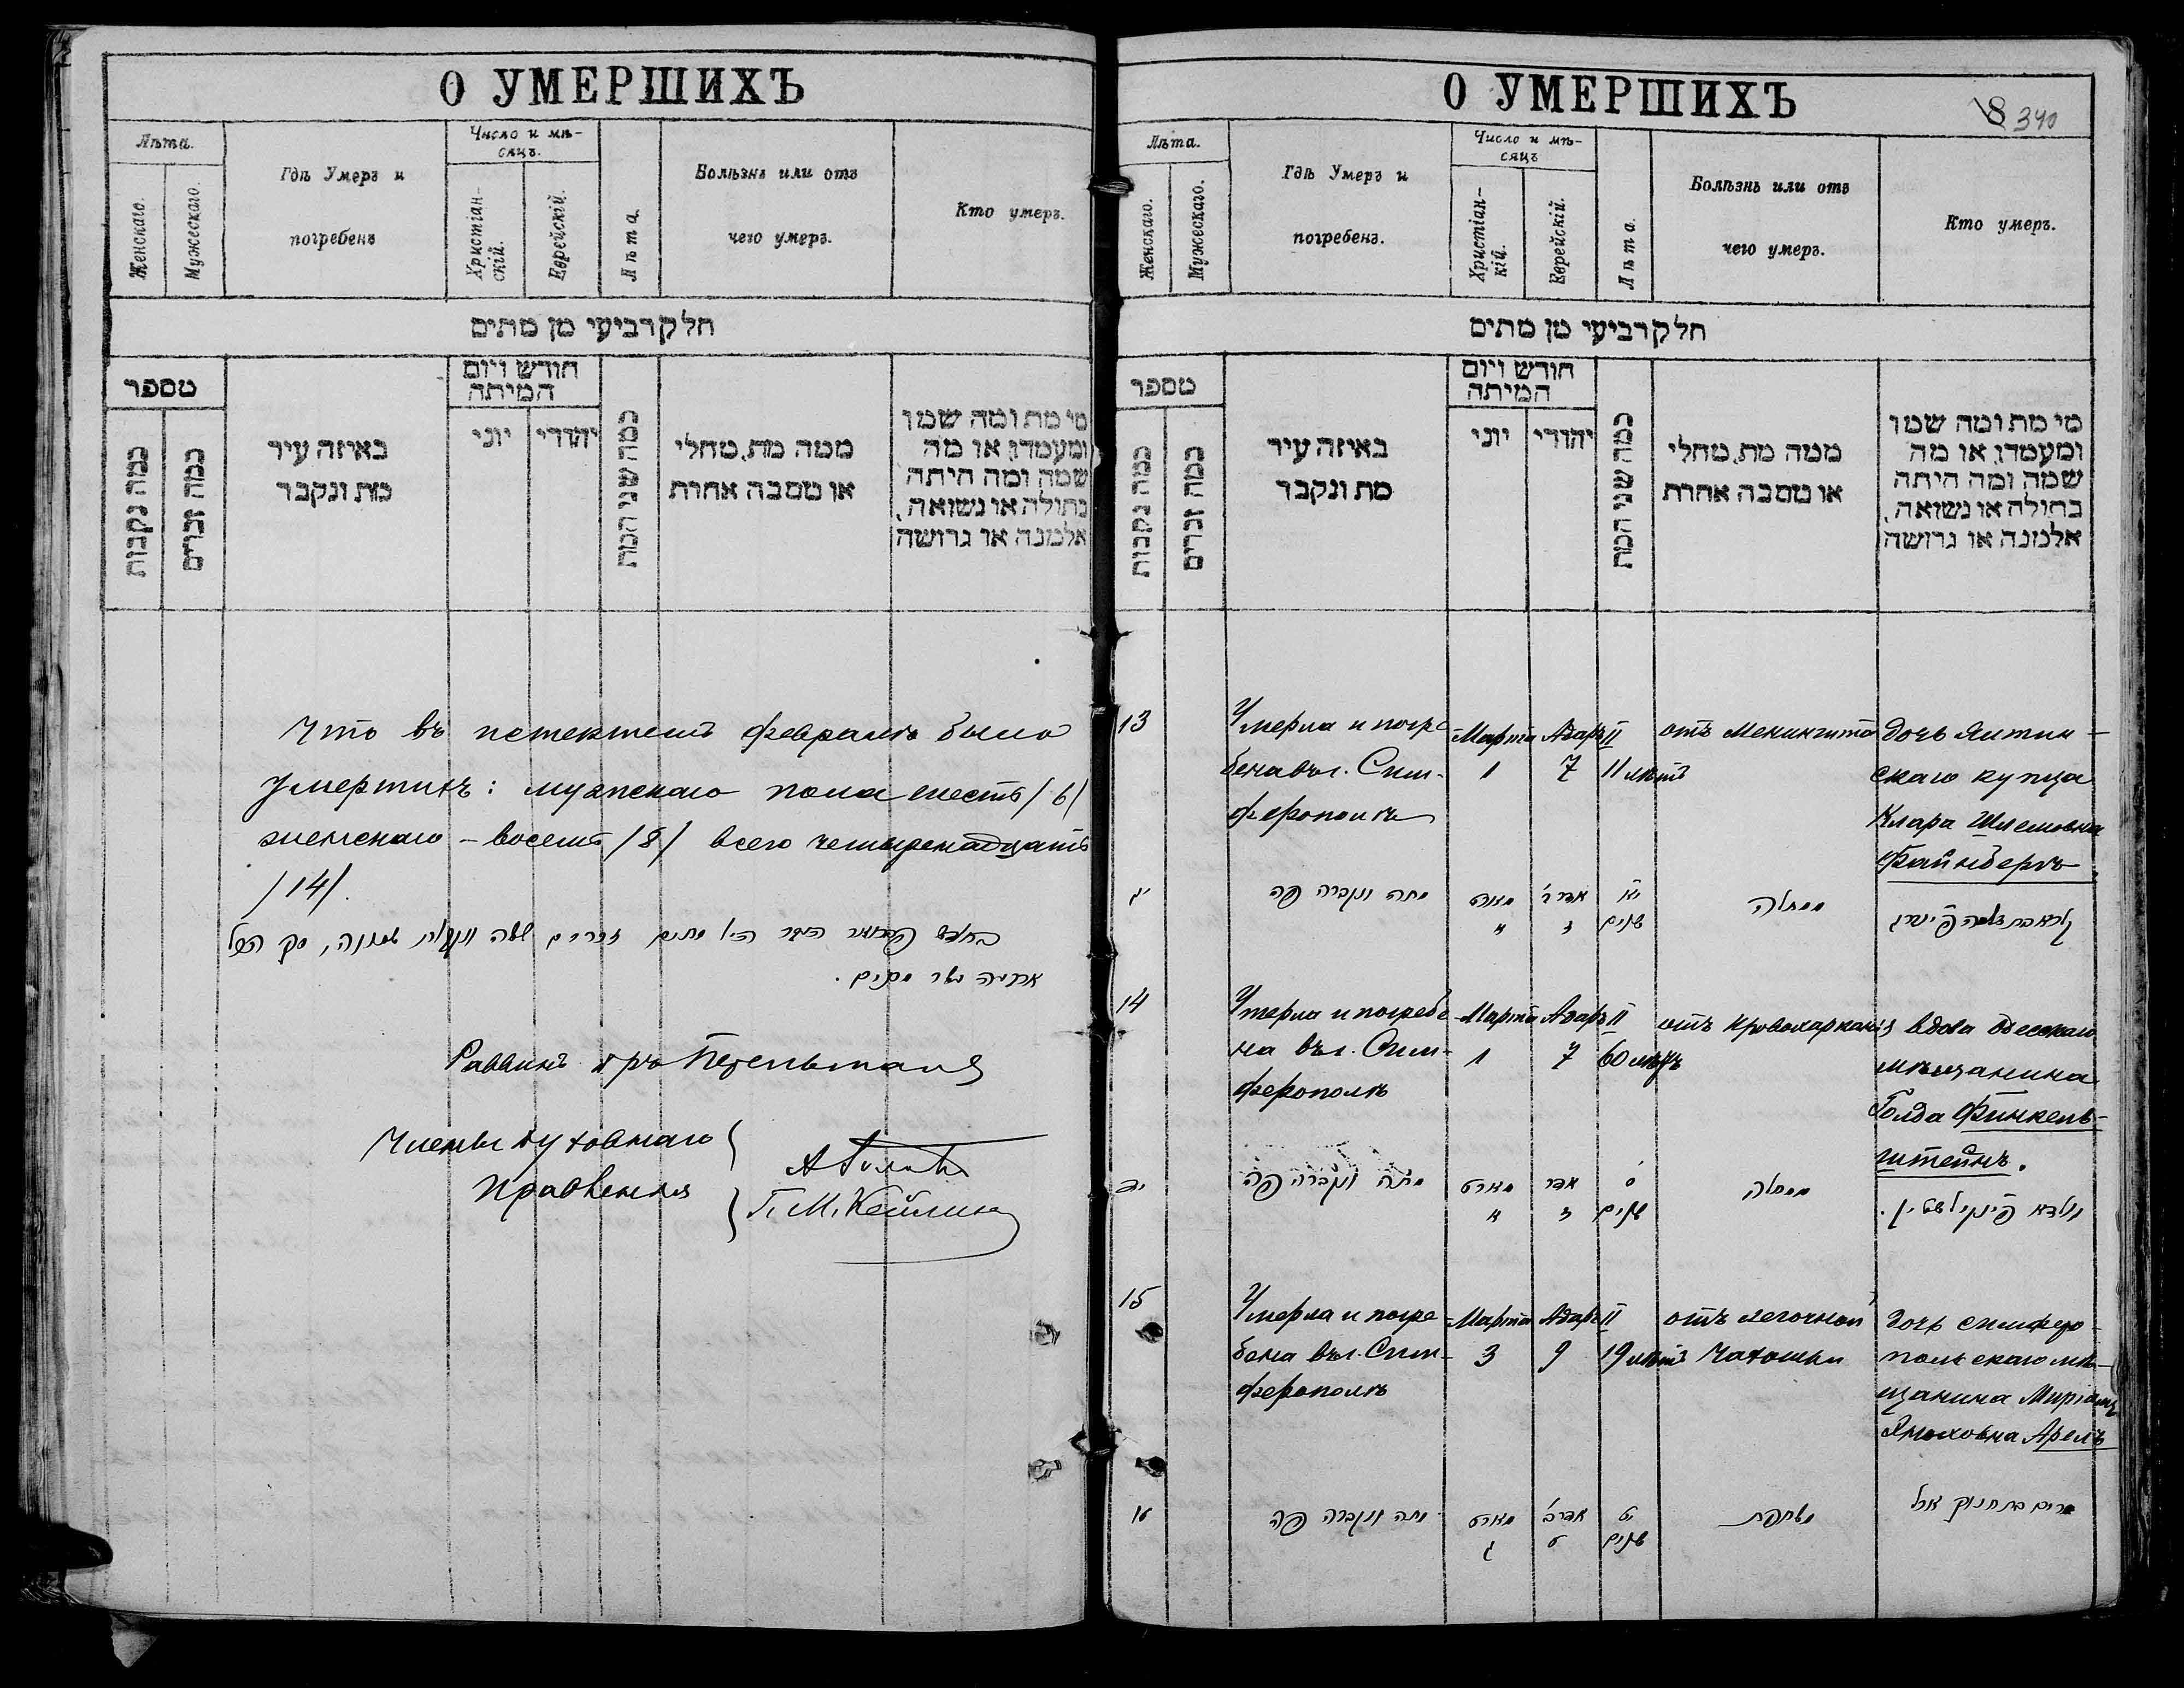 О УМЕРШИХЪ
Лѣта.
Женскаго.
Мужескаго.
Гдѣ Умеръ и
погребенъ
Число и мѣ-
сяцъ.
Христіан-
скій.
Еврейскій.
Лѣта.
Болѣзнь или отъ
чего умеръ.
Кто умеръ.
חלק רביעי מן מתים
מספר
כמה נקבות
כמה זכרים
באיזה עיר
מת ונקבר
חודש ויום
המיתה
יוני
יהודי
כמה שני המת
ממה מת, מחלי
או מסבה אחרת
מי מת ומה שמו
ומעמדו, או מה
שמה ומה היתה
בתולה או נשואה,
אלמנה או גרושה
Что въ истекшемъ февралѣ было
умершихъ: мужескаго пола шесть /6/
женскаго - восемь /8/ всего четырнадцать
/14/.
Раввинъ
Члены духовнаго
Правленія
О УМЕРШИХЪ
18 340
Лѣта.
Женскаго.
Мужескаго.
Гдѣ Умеръ и
погребенъ.
Число и мѣ-
сяцъ
Христіан-
кій.
Еврейскій.
Лѣта.
Болѣзнь или отъ
чего умеръ.
Кто умеръ.
חלק רביעי מן מתים
מספר
כמה נקבות
כמה זכרים
באיזה עיר
מת ונקבר
חודש ויום
המיתה
יוני
יהודי
כמה שני המת
ממה מת, מחלי
או מסבה אחרת
מי מת ומה שמו
ומעמדו, או מה
שמה ומה היתה
בתולה או נשואה,
אלמנה או גרושה
13
Умерла и погре-
бена въ г. Сим-
ферополѣ
Марта
1
Адаръ II
7
11 лѣтъ
отъ менингита
дочь Ялтин-
скаго купца
Клара Шлемовна
Файнбергъ.
יג
מתה ונקברה פה
מארט
א
אדר ב'
ז
יא
שנים
ממחלה
14
Умерла и погребе-
на въ г. Сим-
ферополѣ
Марта
1
Адаръ II
7
60 лѣтъ
отъ кровохарканія
вдова Одесскаго
мѣщанина
Голда Финкель-
штейнъ.
יד
מתה ונקברה פה
מארט
א
אדר
ז
ס'
שנים
ממחלה
גולדא פינקילשטיין.
15
Умерла и погре-
бена въ г. Сим-
ферополѣ
Марта
3
Адаръ II
9
19 лѣтъ
отъ легочной
чахотки
дочь симферо-
польскаго мѣ-
щанина Миріамъ
Яноховна Арель
טו
מתה ונקברה פה
מארט
ג
אדר ב'
ט
יט
שנים
משחפת
מרים בת חנוך אrל